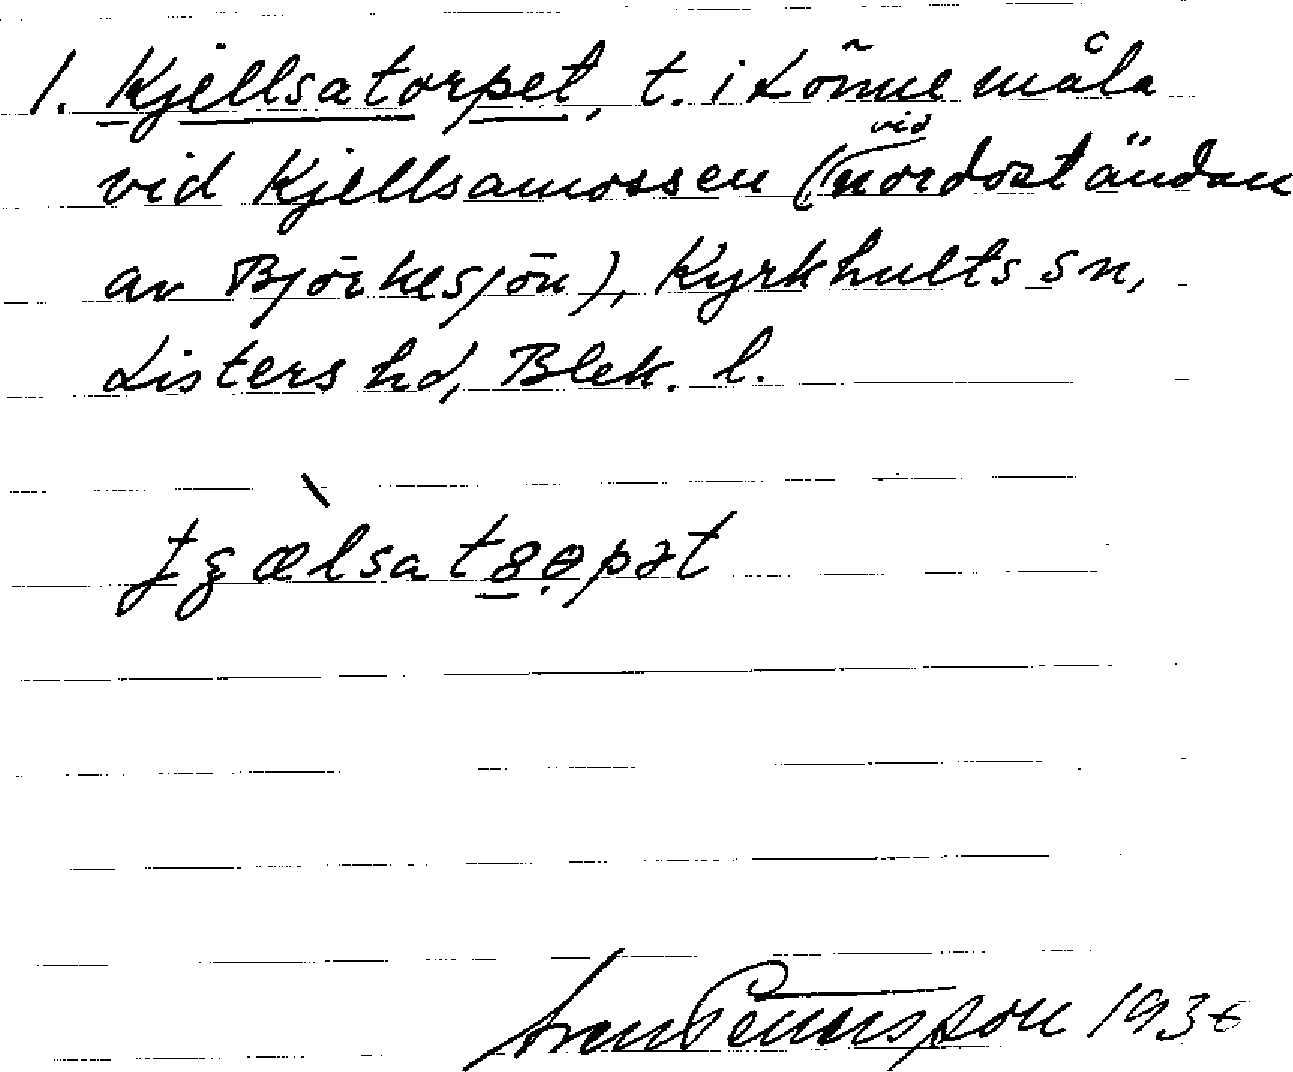 1. Kjellsatorpet, t. i Lönnemåla
vid Kjellsamossen (vid nordostándan
av Björkesjön), Kyrkhults sn,
Listers hd, Blek. l.
1936